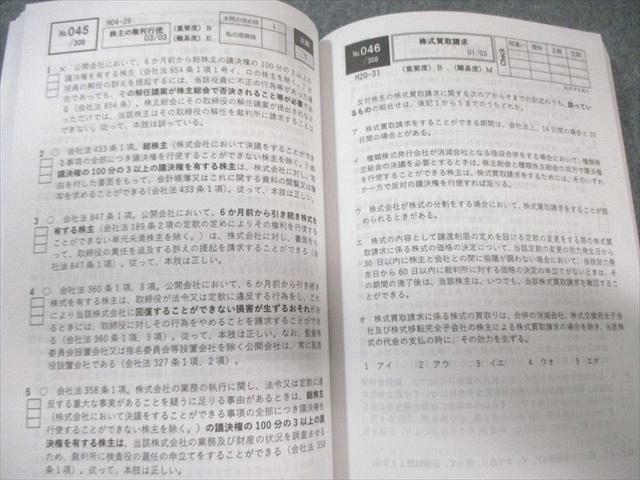 №045
/308
H04-29
株主の権利行使
03/03
(重要度) B
(難易度) E
本問の決め肢
1
私の税務肢
正解
1
1 × 公開会社において、6か月前から総株主の議決権の100分の3以上の
議決権を有する株主(会社法854条1項1号イ、ロの株主を除く。)が
役員の解任の訴えを提起するには、当該役員に不正の行為等があった場
合であっても、その解任議案が株主総会で否決されること等が必要であ
り(会社法854条)、株主総会にその取締役の解任議案が提出されなか
っただけでは、当該株主はその取締役の解任を裁判所に請求することは
できない。従って、本肢は誤っている。
2 ○ 会社法433条1項。総株主(株主総会において決議をすることができ
る事項の全部につき議決権を行使することができない株主を除く。)の
100分の3以上の議決権を有する株主は、株式会社に対し、理
由を付した書面をもって、会計帳簿又はこれに関する資料の閲覧又は謄
写を求めることができる(会社法433条1項)。従って、本肢は正しい。
3 ○ 会社法847条1項。公開会社において、6か月前から引き続き株式を
有する株主(会社法189条2項の定款の定めによりその権利を行使する
ことができない単元未満株主を除く。)は、株式会社に対し、書面をも
って、取締役の責任を追及する訴えの提起を請求することができる(会
社法847条1項)。従って、本肢は正しい。
4 ○ 会社法360条1項、3項。公開会社において、6か月前から引き続き
株式を有する株主は、取締役が法令又は定款に違反する行為をし、これ
により当該株式会社に回復することができない損害が生ずるおそれがあ
るときには、取締役に対しその行為をやめることを請求することができ
る(会社法360条1項、3項)。従って、本肢は正しい。なお、監査等
委員会設置会社又は指名委員会等設置会社を除く公開会社は、常に監査
役設置会社である(会社法327条1項、2項)。
5 ○ 会社法358条1項。株式会社の業務の執行に関し、法令又は定款に違
反する重大な事実があることを疑うに足りる事由があるときは、総株主
(株主総会において決議をすることができる事項の全部につき議決権を
行使することができない株主を除く。)の議決権の100分の3以上の議
決権を有する株主は、当該株式会社の業務及び財産の状況を調査させる
ため、裁判所に検査役の選任の申立てをすることができる(会社法358
条1項)。従って、本肢は正しい。
№046
/308
H20-31
株式買取請求
01/03
(重要度) B
(難易度) M
Check
正解
反対株主の株式買取請求に関する次のアからオまでの記述のうち、誤ってい
るものの組合せは、後記1から5までのうちどれか。
ア 株式買取請求をすることができる期間は、会社法上、14日間の場合と20
日間の場合とがある。
イ 種類株式発行会社が消滅会社となる吸収合併をする場合において、種類株
主総会の決議を必要とするときは、株主総会と種類株主総会の双方で議決権
を行使することができる株主は、株式買取請求をするためには、そのいずれ
か一方で反対の議決権を行使すれば足りる。
ウ 株式会社が株式の分割をする場合において、株式買取請求をすることが認
められるときがある。
エ 株式の内容として譲渡制限の定めを設ける定款の変更をする際の株式買
取請求に係る株式の価格の決定について、当該定款の変更の効力発生日から
30日以内に株主と会社との間に協議が調わない場合において、当該効力発
生日から60日以内に裁判所に対する価格の決定の申立てがないときは、そ
の期間の満了後は、当該株主は、いつでも、当該株式買取請求を撤回するこ
とができる。
オ 株式買取請求に係る株式の買取りは、合併の消滅会社、株式交換完全子会
社及び株式移転完全子会社の株主による株式買取請求の場合を除き、当該株
式の代金の支払の時に、その効力を生ずる。
1 アイ 2 アウ 3 イエ 4 ウオ 5 エオ